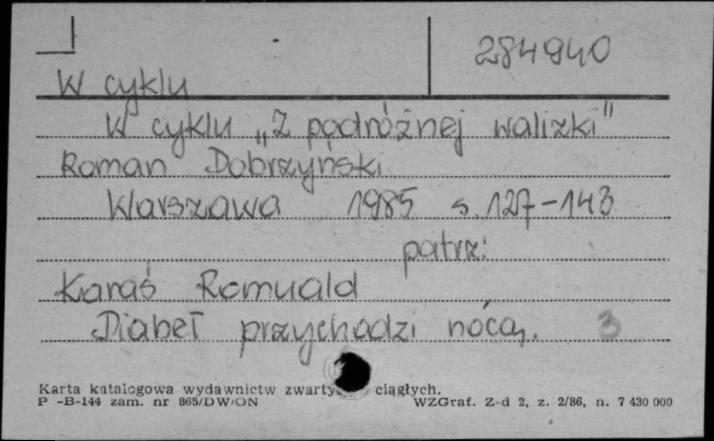 284940
W cyklu
W cyklu „Z podróżnej walizki"
Roman Dobrzyński
Warszawa 1985 s. 127-143
patrz:
Karaś Romuald
Diabeł przychodzi nocą. 3
Karta katalogowa wydawnictw zwarty ciągłych.
P -B-144 zam. nr 865/DW/ON WZGraf. Z-d 2, z. 2/86, n. 7 430 000